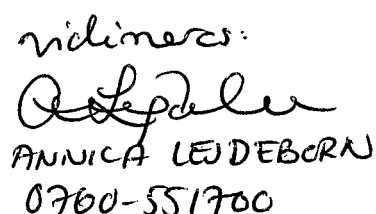 vidimeras:
ANNICA LEJDEBORN
0760-551700